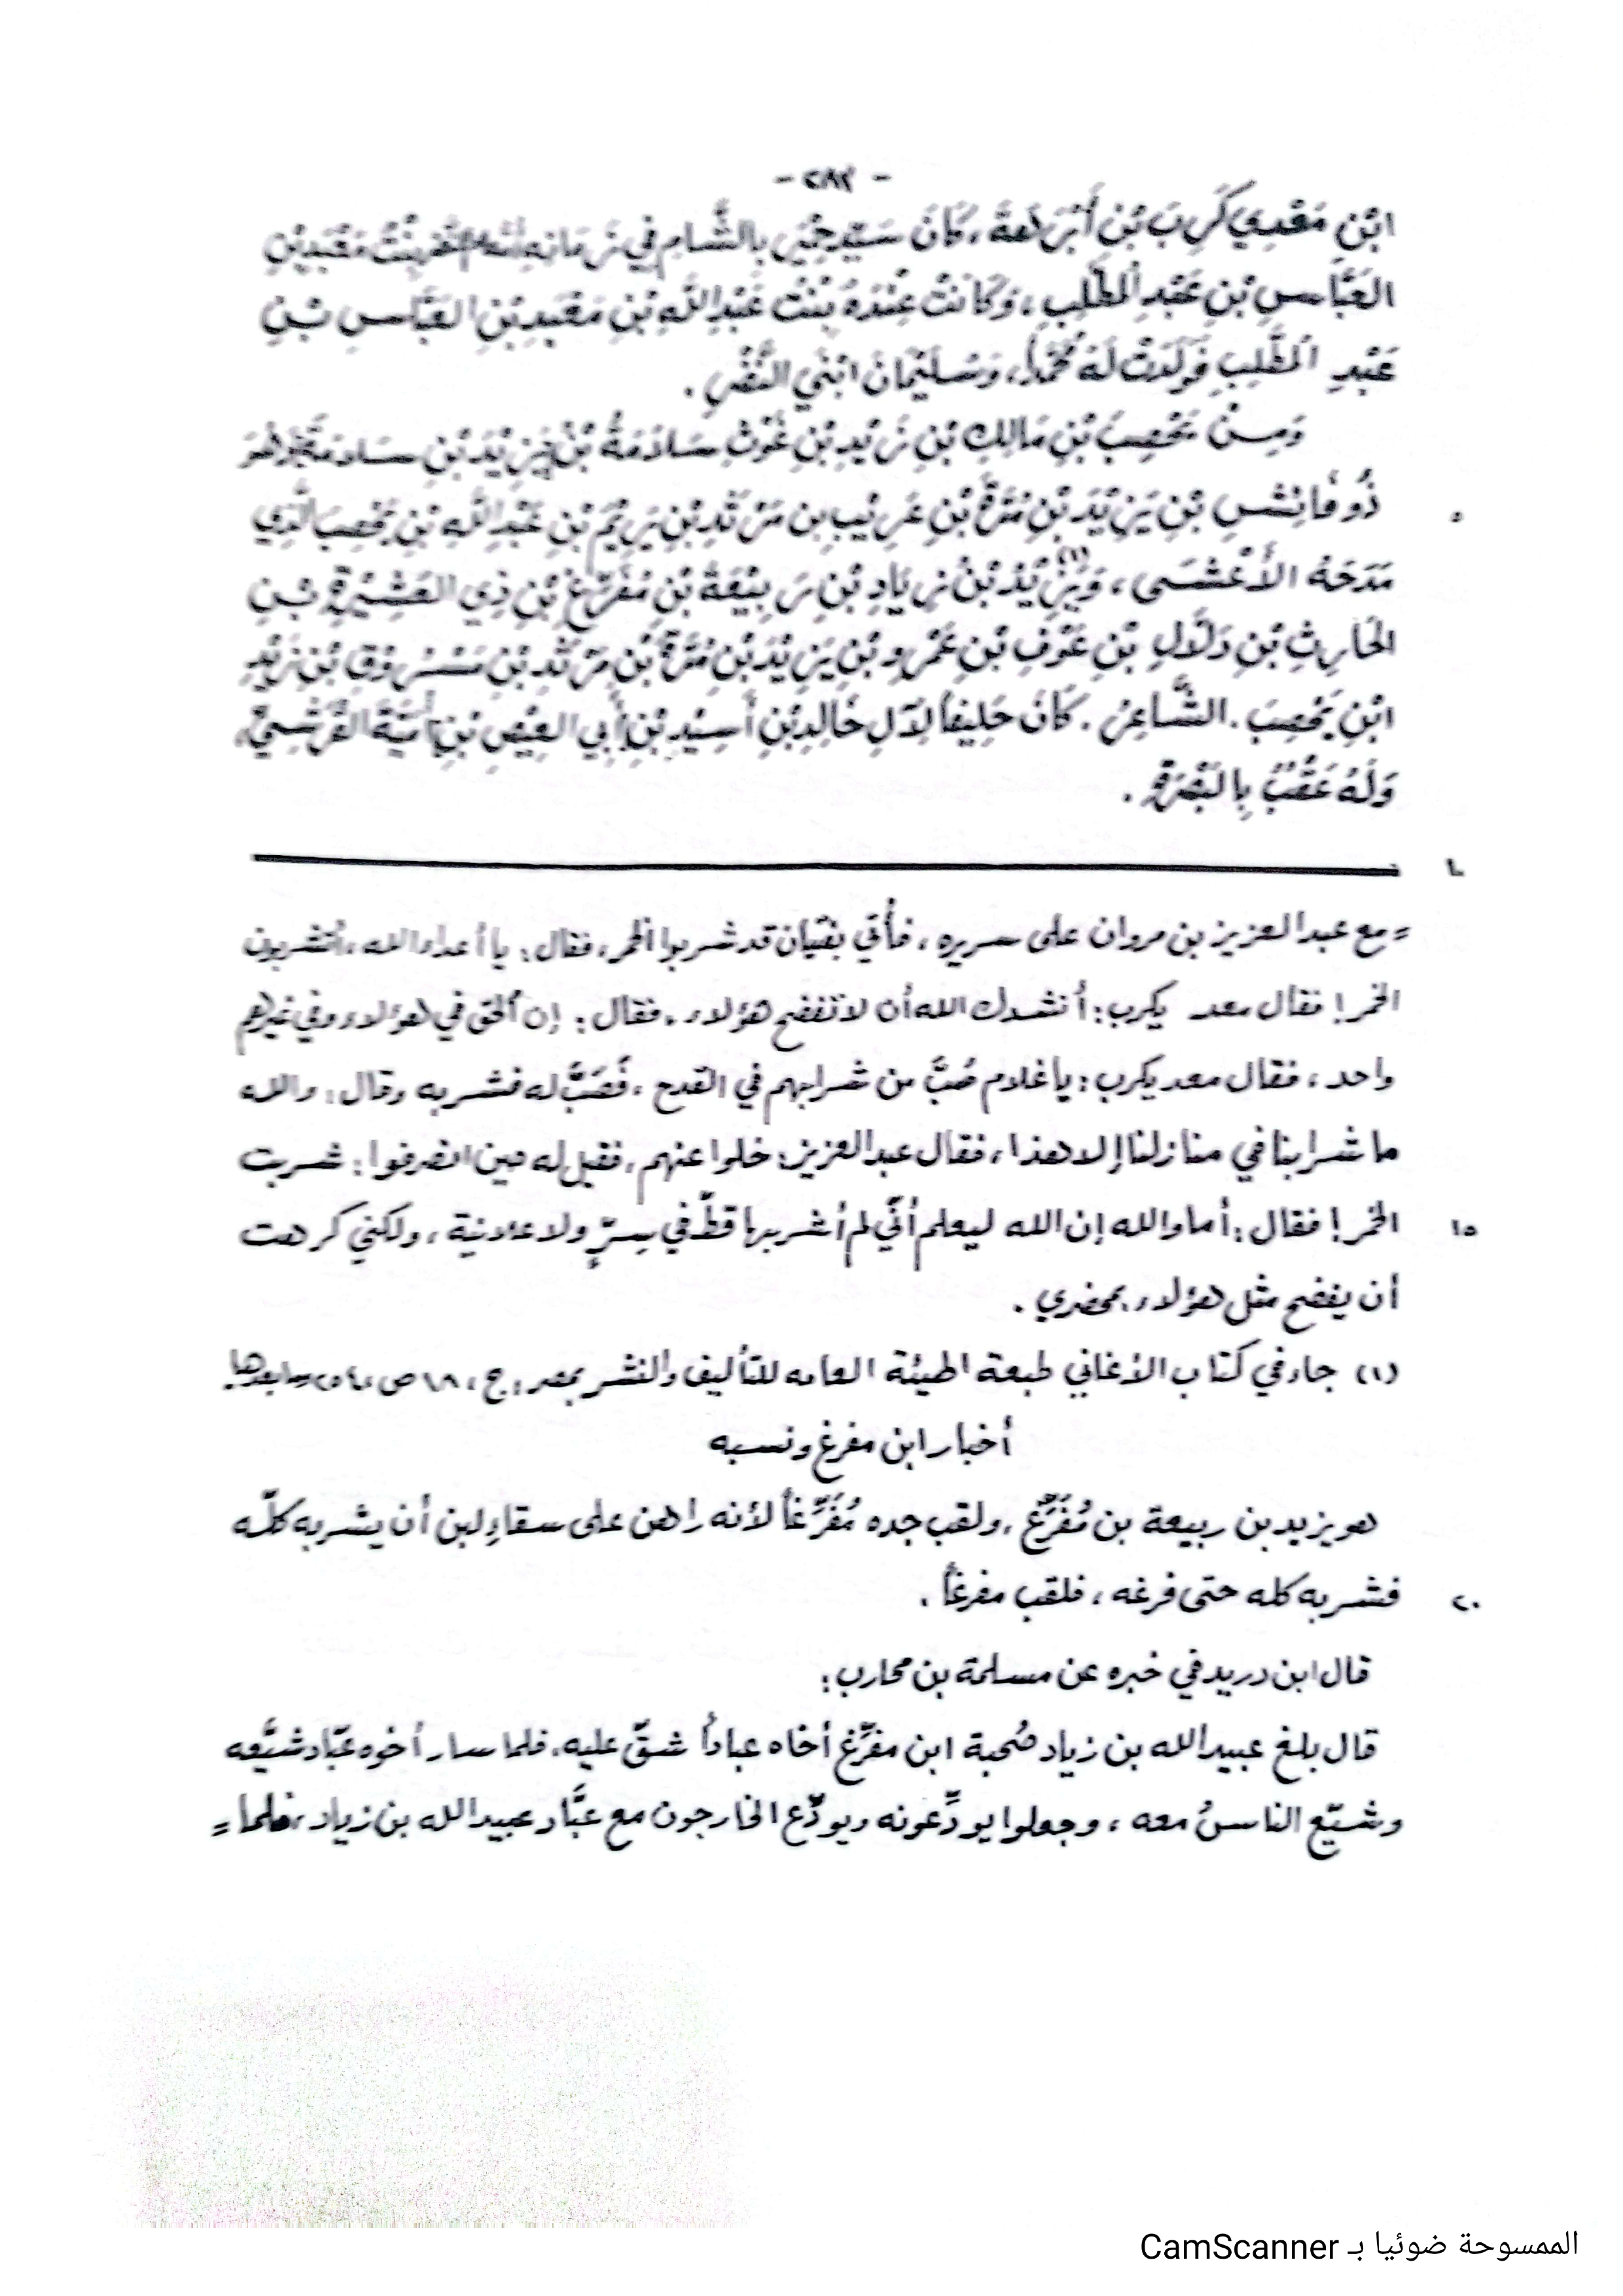 - ٢٨٣ -
ابْنِ مَعْدِي كَرِبَ بْنِ أَبْرَهَةَ، كَانَ سَيِّدَ حِمْيَرَ بِالشَّامِ فِي زَمَانِهِ بِنْتُ مَعْبَدِ بْنِ
العَبَّاسِ بْنِ عَبْدِ المُطَّلِبِ، وَكَانَتْ عِنْدَهُ بِنْتُ عَبْدِ اللَّهِ بْنِ مَعْبَدِ بْنِ العَبَّاسِ بْنِ
عَبْدِ المُطَّلِبِ فَوَلَدَتْ لَهُ مُحَمَّداً، وَسُلَيْمَانَ ابْنَي النَّضْرِ .
وَمِنْ يَحْصِبَ بْنِ مَالِكِ بْنِ زَيْدِ بْنِ غَوْثِ سَلاَمَةُ بْنُ يَزِيْدَ بْنِ سَلاَمَةَ وَهُوَ
٥ ذُو فَائِشِ بْنِ يَزِيْدَ بْنِ مُرَّةَ بْنِ عَرِيْبِ بْنِ مَرْثَدِ بْنِ يَرِيْمَ بْنِ عَبْدِ اللَّهِ بْنِ يَحْصِبَ الَّذِي
مَدَحَهُ الأَعْشَى، وَيَزِيْدُ(١) بْنُ زِيَادِ بْنِ رَبِيْعَةَ بْنِ مُفَرِّغِ بْنِ ذِي العَشِيْرَةِ بْنِ
الحَارِثِ بْنِ دَلاَّلِ بْنِ عَوْفِ بْنِ عَمْرِو بْنِ يَزِيْدَ بْنِ مُرَّةَ بْنِ مَرْثَدِ بْنِ مَسْرُوقِ بْنِ زَيْدِ
ابْنِ يَحْصِبَ . الشَّاعِرُ . كَانَ حَلِيفاً لِآلِ خَالِدِ بْنِ أَسِيْدِ بْنِ أَبِي العِيْصِ بْنِ أُمَيَّةَ القُرَشِيِّ،
وَلَهُ عَقْبٌ بِالبَصْرَةِ .
= مع عبد العزيز بن مروان على سريره ، فأُتي بفتيان قد شربوا الخمر، فقال : يا أعداء الله ، أتشربون
الخمر! فقال معد يكرب : أنشدك الله أن لا تفضح هؤلاء . فقال : إن الحق في هؤلاء وفي غيرهم
واحد ، فقال معد يكرب : يا غلام صُبَّ من شرابهم في القدح ، فَصَبَّ له فشربه وقال : والله
ما شرابنا في منازلنا إلا هذا ، فقال عبد العزيز : خلوا عنهم ، فقيل له حين انصرفوا : شربت
١٥ الخمر! فقال : أما والله إن الله ليعلم أنّي لم أشربها قطّ في سِرٍّ ولا علانية ، ولكني كرهت
أن يفضح مثل هؤلاء بمحضري .
(١) جاء في كتاب الأغاني طبعة الهيئة العامه للتأليف والنشر بمصر : ج ، ١٨ ص ، ٢٥٤ وما بعدها .
أخبار ابن مفرغ ونسبه
هو يزيد بن ربيعة بن مُفَرِّغ ، ولقب جده مُفَرِّغاً لأنه راهن على سقاءِ لبن أن يشربه كلّه
٢٠ فشربه كله حتى فرغه ، فلقب مفرغاً .
قال ابن دريد في خبره عن مسلمة بن محارب :
قال بلغ عبيد الله بن زياد صُحبة ابن مفرّغ أخاه عباداً شقّ عليه، فلما سار أخوه عبّاد شيَّعه
وشيّع الناسُ معه ، وجعلوا يودِّعونه ويودِّع الخارجون مع عبَّاد عبيد الله بن زياد ، فلما =
الممسوحة ضوئيا بـ CamScanner